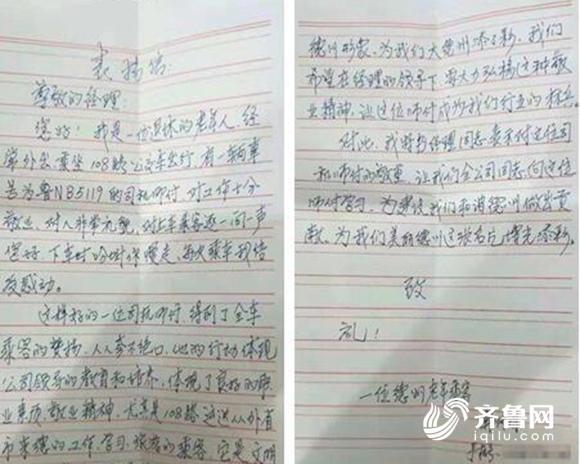 表扬信:
尊敬的经理:
您好!我是一位退休的老年人,经
常外出乘坐108路公交车出行,有一辆车
号为鲁NB5119的司机师付,对工作十分
敬业,对人非常礼貌,对上车乘客逐一问声
您好,下车时吩咐你慢走,每次乘车我倍
反感动。
这样好的一位司机师付,得到了全车
乘客的赞扬,人人夸不绝口,他的行动体现
公司领导的教育和培养,体现了良好的职
业素质敬业精神,尤其是108路迎送从外省
市来德的工作学习、旅游的乘客,它是文明
德州形象,为我们大德州添了彩,我们
希望在经理的领导下要大力弘扬这种敬
业精神,让这位师付成为我们行业的标兵
对此,我特书经理同志表示对这位司
机师付的敬重,让我们全公司同志向这位
师付学习,为建设我们和谐德州做出贡
献,为我们美丽德州这张名片增光添彩。
致
礼!
一位德州老年乘客
齐鲁网
iqilu.com